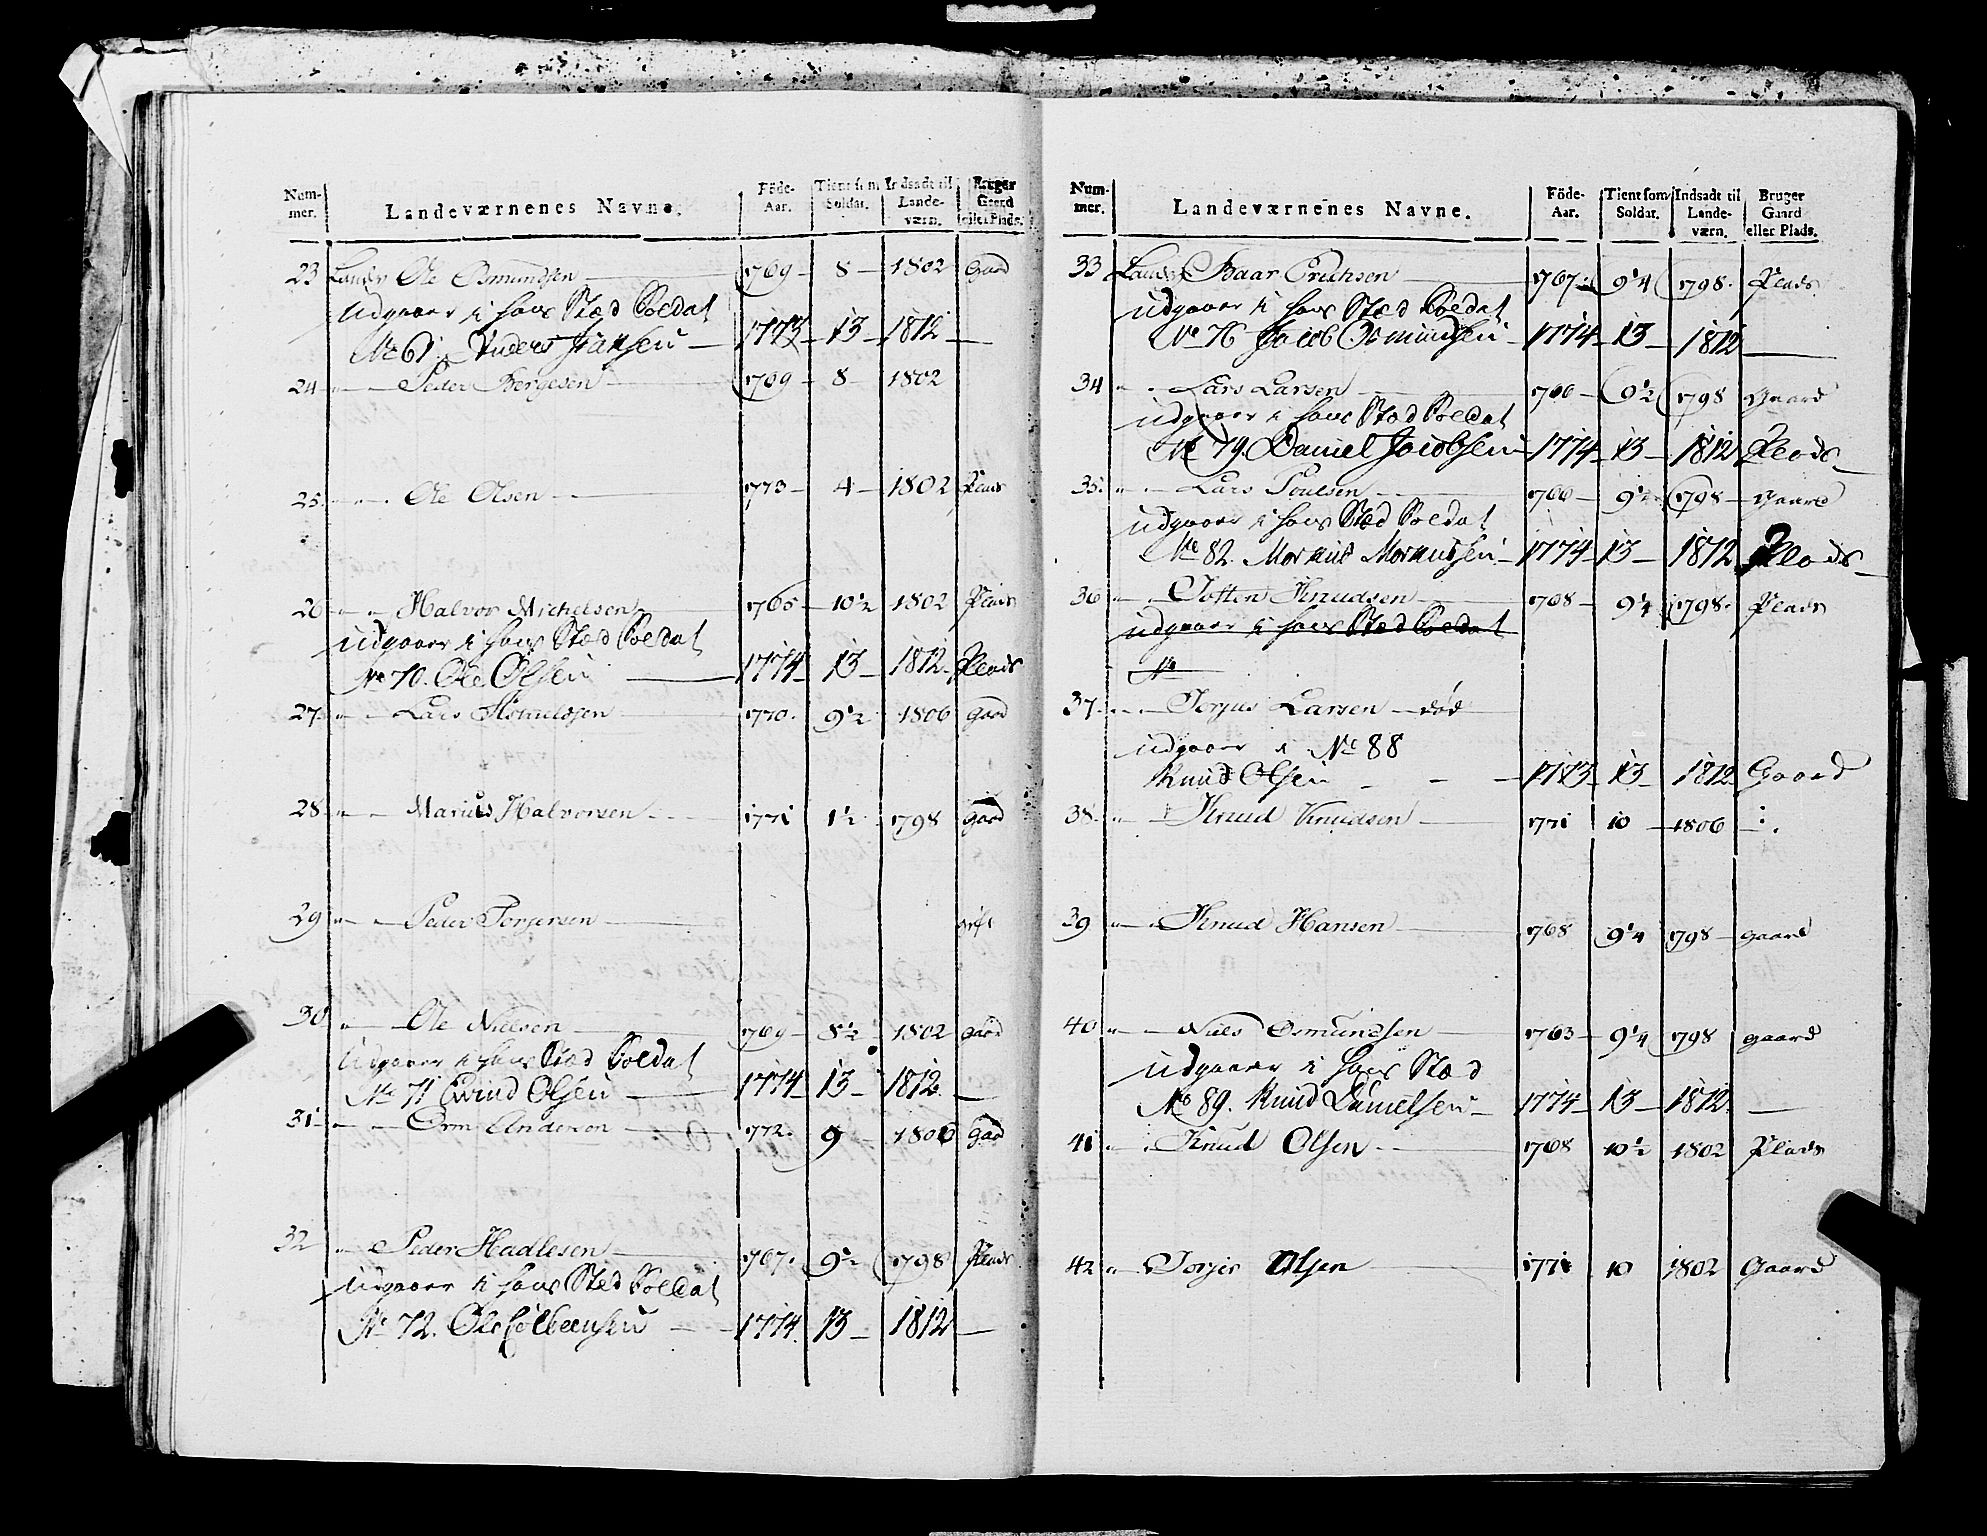 Num- Landeværnenes Navne. Föde- Tient som Indsadt til Bruger
mer. Aar. Soldat. Lande- Gaard
værn. eller Plads.
23 Landv Ole Osmundsen 1769 8 1802 Gaard
udgaaer i hans Stæd Soldat
No 61. Anders Jansen 1773 13 1812
24 " Peder Bergesen 1769 8 1802
25. " Ole Olsen 1773 4 1802 Plads
26 " Halvor Michelsen 1765 10½ 1802 Plads
udgaaer i hans Stæd Soldat
No 70. Ole Olsen 1774 13 1812 Plads
27 " Lars 1770. 9½ 1806 Gaard
28 " Marius Halvorsen 1771 1½ 1798 Gaard
29 " Peder Torgersen
30 " Ole Nielsen 1769 8½ 1802 Gaard
udgaaer i hans Stæd Soldat
No 71 Evind Olsen 1774 13 1812
31 " Orm Andersen 1772. 9 1806 Gaard
32 " Peder Hadlesen 1767. 9½ 1798 Plads
udgaaer i hans Stæd Soldat
No 72. Ole 1774. 13 1812
Num- Landeværnenes Navne. Föde- Tient som Indsadt til Bruger
mer. Aar. Soldat. Lande- Gaard
værn. eller Plads.
33 Landv Baar 1767 9¼ 1798. Plads
udgaaer i hans Stæd Soldat
No 76 Jacob Osmundsen 1774 13 1812
34 " Lars Larsen 1766 9½ 1798 Gaard
udgaaer i hans Stæd Soldat
No 79. Daniel Jacobsen 1774 13 1812 Plads
35. " Lars Poulsen 1766 9½ 1798 Gaard
udgaaer i hans Stæd Soldat
No 82. 1774 13 1812 Plads
36 " Knudsen 1768 9¼ 1798. Plads
udgaaer i hans Stæd Soldat
No
37 " Torjus Larsen død
udgaaer i No 88
Knud Olsen 1773 13 1812 Gaard
38. " Knud Knudsen 1771 10 1806
39 " Knud Hansen 1768 9¼ 1798 gaard
40 " Niels Osmundsen 1763 9¼ 1798 gaard
udgaaer i hans Stæd
No 89. Knud Danielsen 1774 13 1812
41 " Knud Olsen 1768 10½ 1802 Plads
42 " Torjer Olsen 1771 10 1802 Gaard